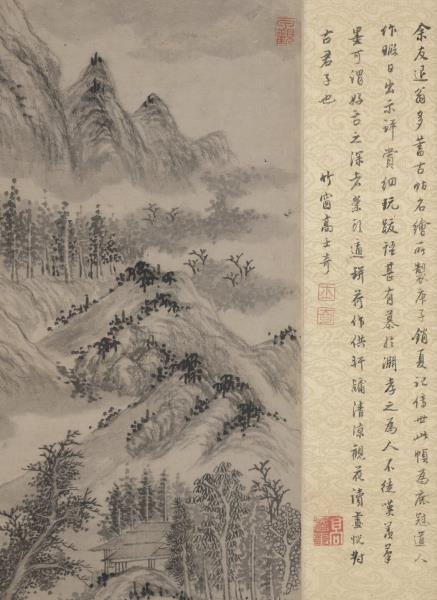 余友退翁多蓄古帖名繪所製庚子銷夏記傳世此幀為廉冠道人
作暇日出示評賞細玩跋語甚有慕於淵孝之為人不徒嘆羨筆
墨可謂好古之深者梁於通研荷作供軒牖清涼視花讀畫恍對
古君子也 竹窗高士奇